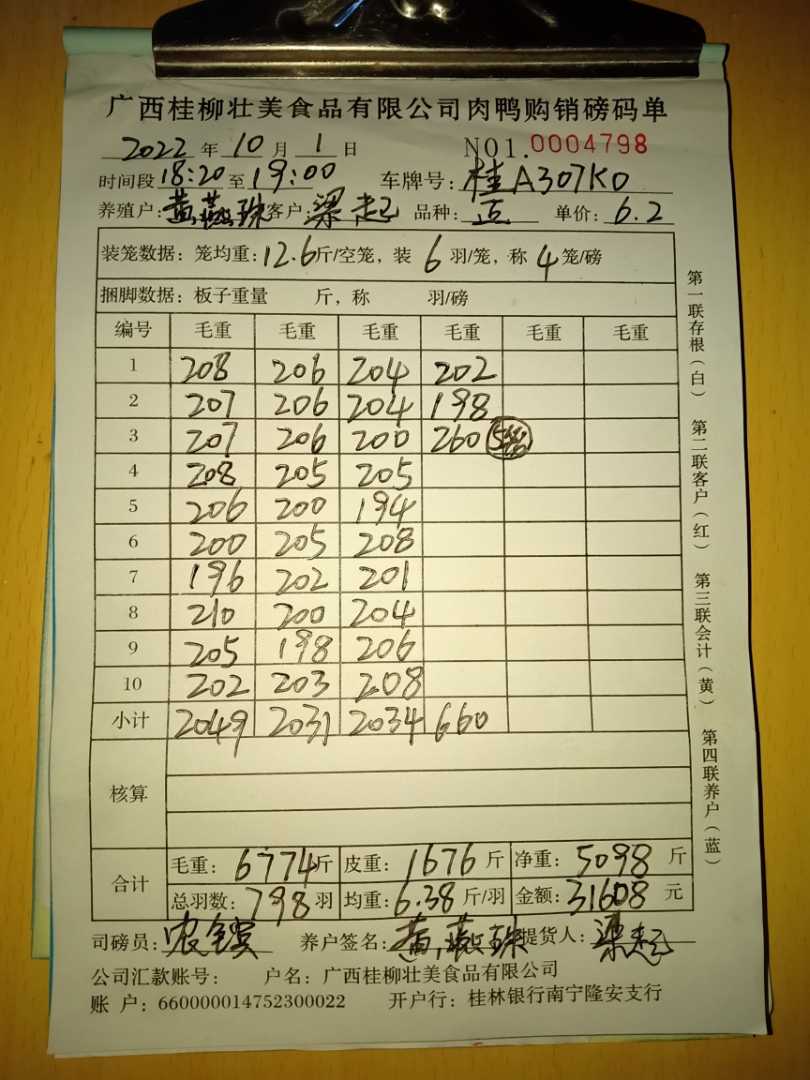 广西桂柳壮美食品有限公司肉鸭购销磅码单
2022 年 10 月 1 日 NO1.0004798
时间段 18:20 至 19:00 车牌号: 桂A307K0
养殖户: 黄燕珠 客户: 梁起 品种: 正 单价: 6.2
装笼数据: 笼均重: 12.6 斤/空笼, 装 6 羽/笼, 称 4 笼/磅
捆脚数据: 板子重量 斤, 称 羽/磅
编号 毛重 毛重 毛重 毛重 毛重 毛重
1 208 206 204 202
2 207 206 204 198
3 207 206 200 260
4 208 205 205
5 206 200 194
6 200 205 208
7 196 202 201
8 210 200 204
9 205 198 206
10 202 203 208
小计 2049 2031 2034 660
核算
合计
毛重: 6774 斤 皮重: 1676 斤 净重: 5098 斤
总羽数: 798 羽 均重: 6.38 斤/羽 金额: 31608 元
司磅员: 养户签名: 黄燕珠 提货人: 梁起
公司汇款账号: 户名: 广西桂柳壮美食品有限公司
账 户: 660000014752300022 开户行: 桂林银行南宁隆安支行
第一联存根(白) 第二联客户(红) 第三联会计(黄) 第四联养户(蓝)